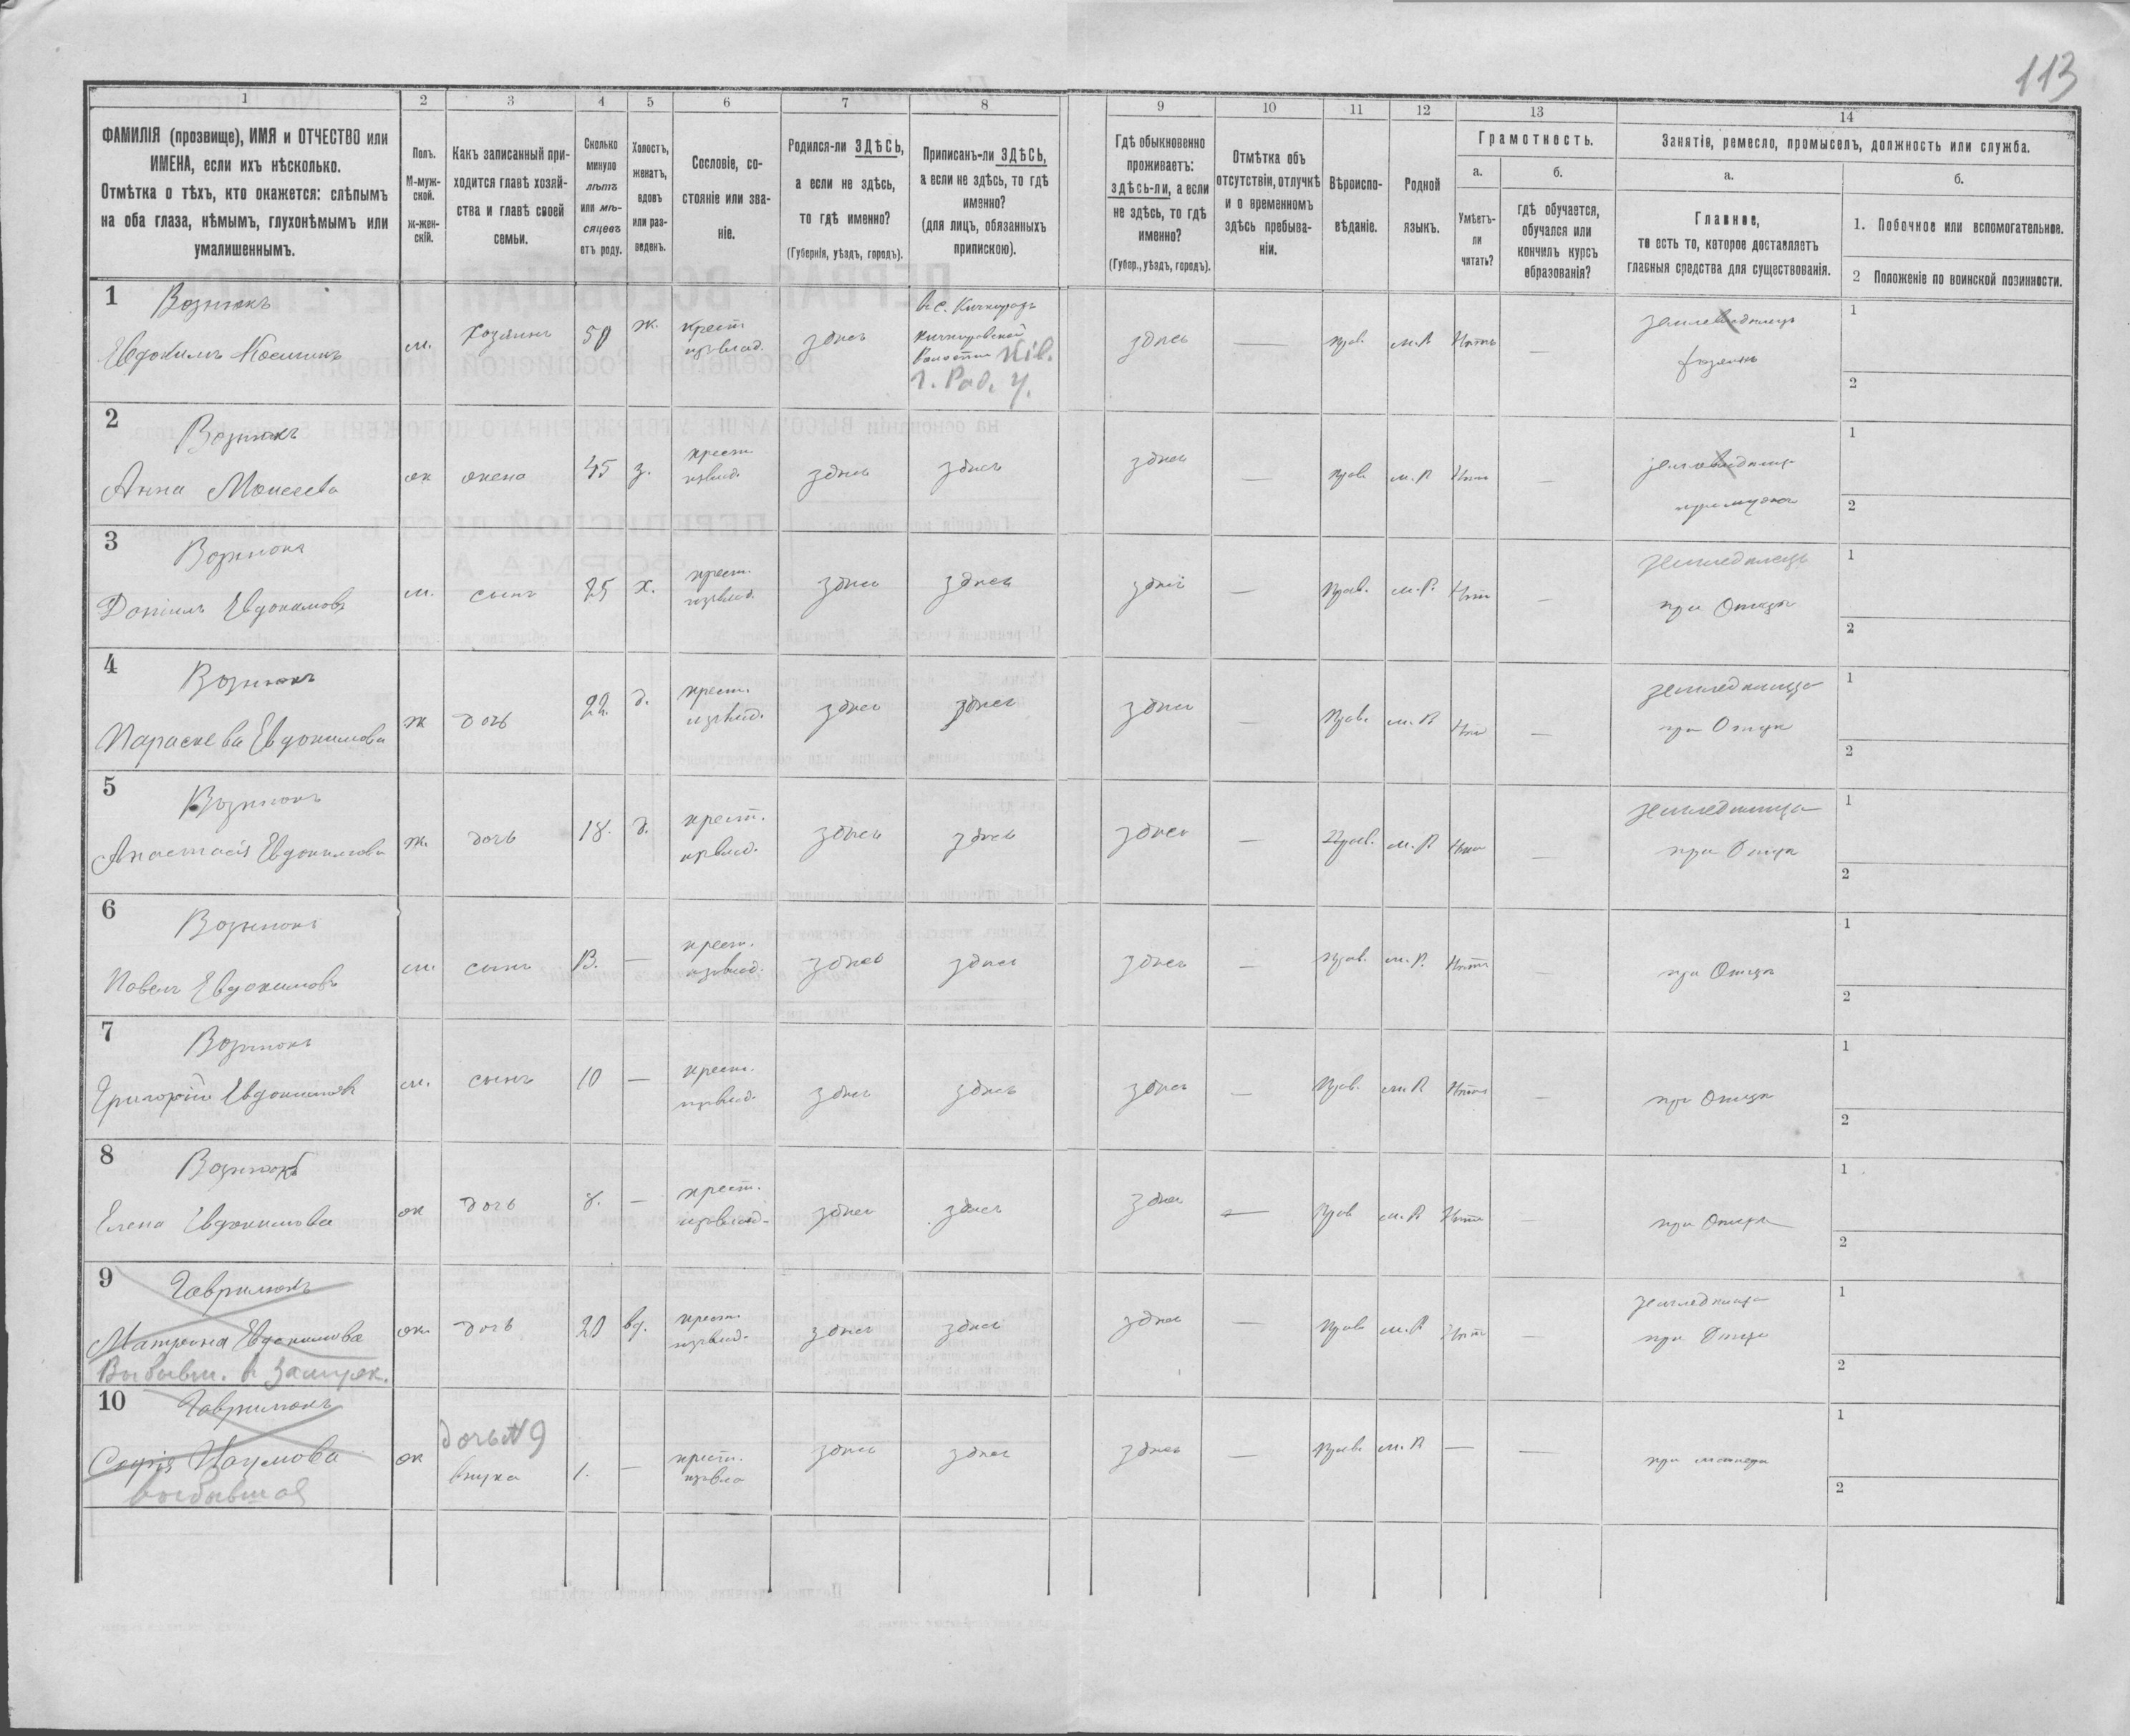 113
1 2 3 4 5 6 7 8 9 10 11 12 13 14
ФАМИЛІЯ (прозвище), ИМЯ и ОТЧЕСТВО или
ИМЕНА, если ихъ нѣсколько.
Отмѣтка о тѣхъ, кто окажется: слѣпымъ
на оба глаза, нѣмымъ, глухонѣмымъ или
умалишеннымъ.
Полъ.
М-муж-
ской.
Ж-жен-
скій.
Какъ записанный при-
ходится главѣ хозяй-
ства и главѣ своей
семьи.
Сколько
минуло
лѣтъ
или мѣ-
сяцевъ
отъ роду.
Холостъ,
женатъ,
вдовъ
или раз-
веденъ.
Сословіе, со-
стояніе или зва-
ніе.
Родился-ли ЗДѢСЬ,
а если не здѣсь,
то гдѣ именно?
(Губернія, уѣздъ, городъ).
Приписанъ-ли ЗДѢСЬ,
а если не здѣсь, то гдѣ
именно?
(для лицъ, обязанныхъ
припискою).
Гдѣ обыкновенно
проживаетъ:
здѣсь-ли, а если
не здѣсь, то гдѣ
именно?
(Губер., уѣздъ, городъ).
Отмѣтка объ
отсутствіи, отлучкѣ
и о временномъ
здѣсь пребыва-
ніи.
Вѣроиспо-
вѣданіе.
Родной
языкъ.
Грамотность.
а.
Умѣетъ-
ли
читать?
б.
гдѣ обучается,
обучался или
кончилъ курсъ
образованія?
Занятіе, ремесло, промыселъ, должность или служба.
а.
Главное,
то есть то, которое доставляетъ
главныя средства для существованія.
б.
1. Побочное или вспомогательное.
2 Положеніе по воинской повинности.
1 Вознюкъ
Евдокимъ
м. хозяинъ 50 ж. крест. здѣсь
Кив.
г. Рад. у.
здѣсь — прав. м.Р. Нѣтъ —
земледѣлецъ
хозяинъ
1
2
2 Вознюкъ
Анна Моисеева
ж жена 45 з. крест. здѣсь здѣсь здѣсь — прав. м.Р. Нѣтъ —
1
2
3 Вознюкъ
Даніилъ Евдокимовъ
м. сынъ 25 х. крест. здѣсь здѣсь здѣсь — Прав. м.Р. Нѣтъ —
земледѣлецъ
при Отцѣ
1
2
4 Вознюкъ
Параскева Евдокимова
ж дочь 22. д. крест. здѣсь здѣсь здѣсь — Прав. м.Р. Нѣтъ —
земледѣлица
при Отцѣ
1
2
5 Вознюкъ
Анастасія Евдокимова
ж. дочь 18. д. крест. здѣсь здѣсь здѣсь — Прав. м.Р. Нѣтъ —
земледѣлица
при Отцѣ
1
2
6 Вознюкъ
Павелъ Евдокимовъ
м. сынъ 13. — крест. здѣсь здѣсь здѣсь — Прав. м.Р. Нѣтъ
при Отцѣ
1
2
7 Вознюкъ
Григорій Евдокимовъ
м. сынъ 10 — крест. здѣсь здѣсь здѣсь — Прав. м.Р. Нѣтъ —
при Отцѣ
1
2
8 Вознюкъ
Елена Евдокимова
ж дочь 8. — крест. здѣсь здѣсь здѣсь — Прав. м.Р. Нѣтъ —
при Отцѣ
1
2
9 Гаврилюкъ
Матрона Евдокимова
Выбывш. в замуж.
ж. дочь 20 вд. крест. здѣсь здѣсь здѣсь — Прав. м.Р. Нѣтъ —
земледѣлица
при Отцѣ
1
2
10 Гаврилюкъ
Софія Наумова
выбывшая
ж
дочь N 9
внучка
1. — крест. здѣсь здѣсь здѣсь — Прав. м.Р. — —
при матери
1
2